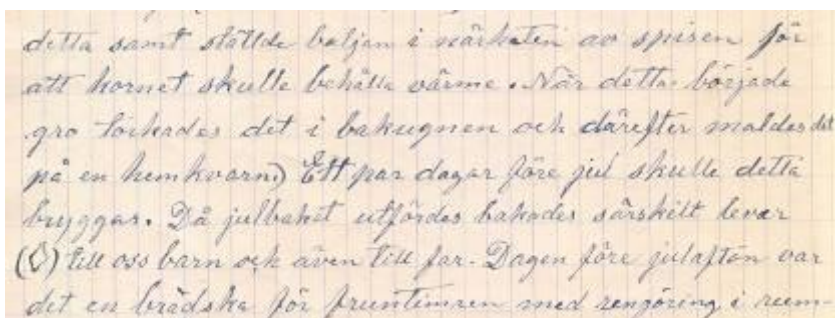 detta samt ställde baljan i närheten av spisen för
att kornet skulle behålla värme. När detta började
gro torkades det i bakugnen och därefter maldes det
på en hemkvarn.) Ett par dagar före jul skulle detta
bryggas. Då julbaket utfördes bakades särskilt levar
till oss barn och även till far. Dagen före julafton var
det en brådska för fruntimren med rengöring i rum-